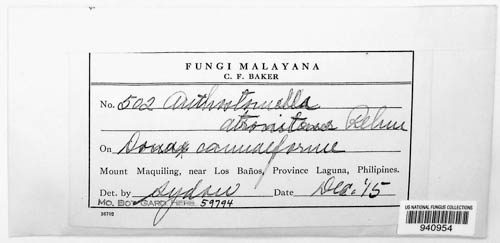 FUNGI MALAYANA
C. F. BAKER
No. 502 Anthostomella
atronitens Rehm
On Donax cannaeforme
Mount Maquiling, near Los Baños, Province Laguna, Philipines.
Det. by Sydow Date Dec. '15
MO. BOT. GARD. HERB. 59794
36702
US NATIONAL FUNGUS COLLECTIONS
940954